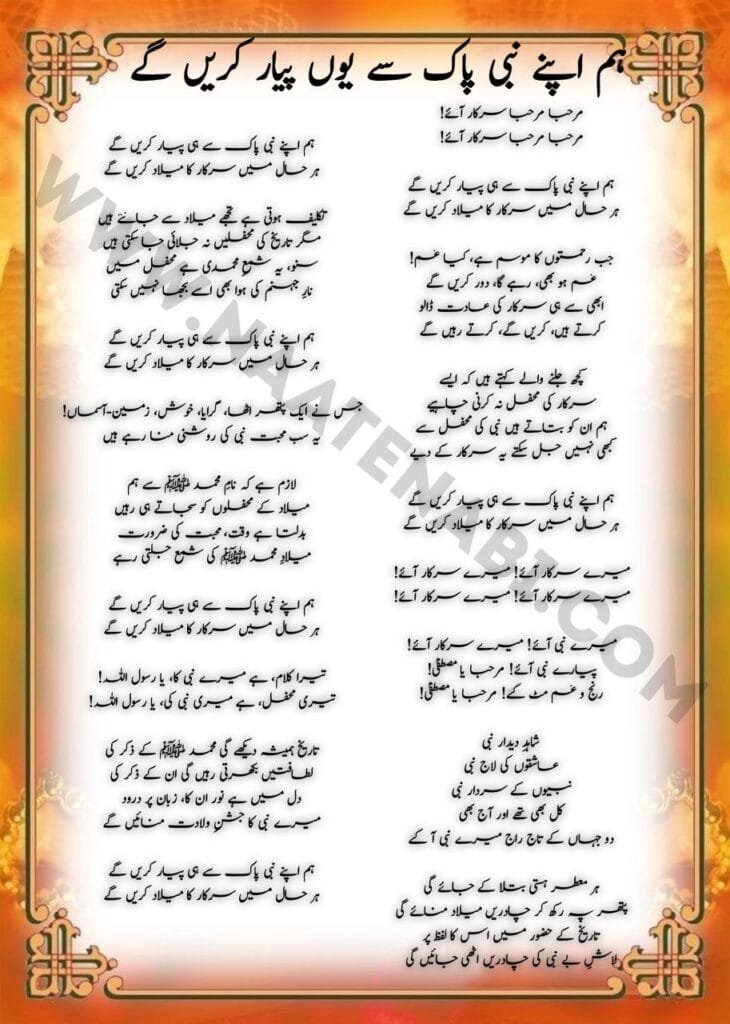 ہم اپنے نبی پاک سے یوں پیار کریں گے
مرحبا مرحبا سرکار آئے!
مرحبا مرحبا سرکار آئے!
ہم اپنے نبی پاک سے ہی پیار کریں گے
ہر حال میں سرکار کا میلاد کریں گے
جب رحمتوں کا موسم ہے، کیا غم!
غم ہو بھی، رہے گا، دور کریں گے
ابھی سے ہی سرکار کی عادت ڈالو
کرتے ہیں، کریں گے، کرتے رہیں گے
کچھ جلنے والے کہتے ہیں کہ ایسے
سرکار کی محفل نہ کرنی چاہیے
ہم ان کو بتاتے ہیں نبی کی محفل سے
کبھی نہیں جل سکتے یہ سرکار کے دیے
ہم اپنے نبی پاک سے ہی پیار کریں گے
ہر حال میں سرکار کا میلاد کریں گے
میرے سرکار آئے! میرے سرکار آئے!
میرے سرکار آئے! میرے سرکار آئے!
میرے نبی آئے! میرے سرکار آئے!
پیارے نبی آئے! مرحبا یا مصطفیٰ!
رنج و غم مٹ کے! مرحبا یا مصطفیٰ!
شاہدِ دیدار نبی
عاشقوں کی لاج نبی
نبیوں کے سردار نبی
کل بھی تھے اور آج بھی
دو جہاں کے تاج راج میرے نبی آ گئے
ہر معطر ہستی بتلا کے جائے گی
پتھر پہ رکھ کر چادریں میلاد منائے گی
تاریخ کے حضور میں اس کا لفظ پر
لاشِ بے نبی کی چادریں اٹھی جائیں گی
ہم اپنے نبی پاک سے ہی پیار کریں گے
ہر حال میں سرکار کا میلاد کریں گے
تکلیف ہوتی ہے تجھے میلاد سے جانتے ہیں
مگر تاریخ کی محفلیں نہ جلائی جا سکتی ہیں
سنو، یہ شمعِ محمدی ہے محفل میں
نارِ جہنم کی ہوا بھی اسے بجھا نہیں سکتی
ہم اپنے نبی پاک سے ہی پیار کریں گے
ہر حال میں سرکار کا میلاد کریں گے
جس نے ایک پتھر اٹھا، گرایا، خوش، زمین-آسماں!
یہ سب محبت نبی کی روشنی منا رہے ہیں
لازم ہے کہ نامِ محمد ﷺ سے ہم
میلاد کے محفلوں کو سجاتے ہی رہیں
بدلتا ہے وقت، محبت کی ضرورت
میلادِ محمد ﷺ کی شمع جلتی رہے
ہم اپنے نبی پاک سے ہی پیار کریں گے
ہر حال میں سرکار کا میلاد کریں گے
تیرا کلام، ہے میرے نبی کا، یا رسول اللہ!
تیری محفل، ہے میری نبی کی، یا رسول اللہ!
تاریخ ہمیشہ دیکھے گی محمد ﷺ کے ذکر کی
لطافتیں بکھرتی رہیں گی ان کے ذکر کی
دل میں ہے نور ان کا، زبان پر درود
میرے نبی کا جشنِ ولادت منائیں گے
ہم اپنے نبی پاک سے ہی پیار کریں گے
ہر حال میں سرکار کا میلاد کریں گے
WWW.NAATENABI.COM